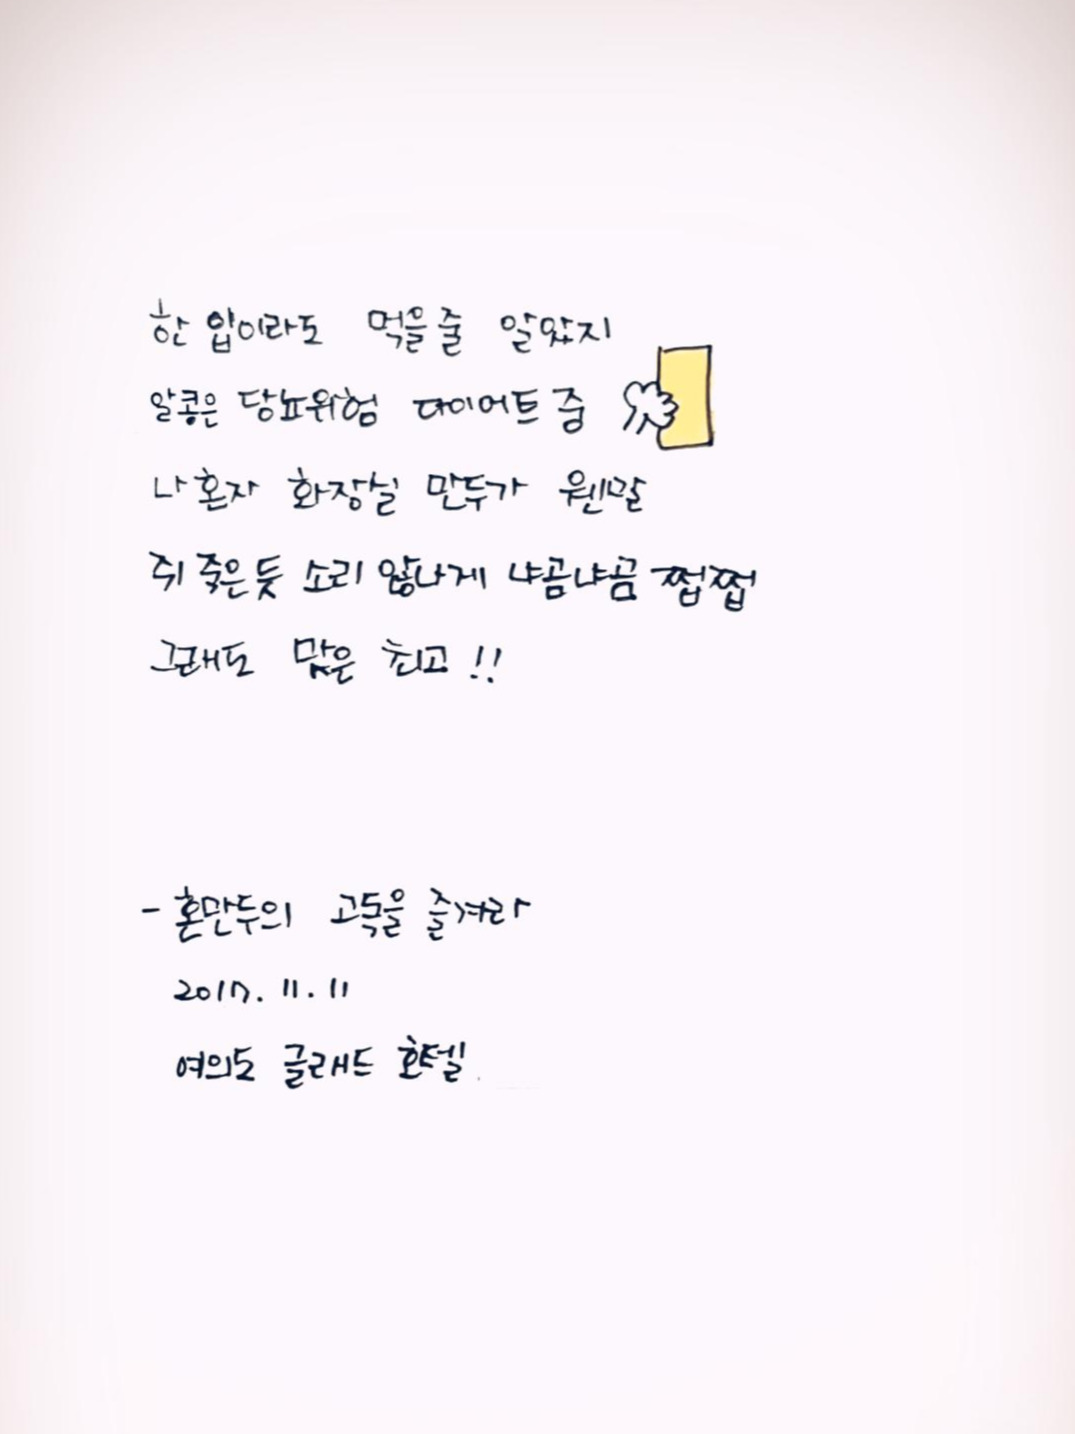 한 입이라도 먹을 줄 알았지
알콩은 당뇨위험 다이어트 중
나 혼자 화장실 만두가 웬말
쥐 죽은듯 소리 않나게 냐곰냐곰 쩝쩝
그래도 맞은 최고!!
- 혼만두의 고독을 즐겨라
2017. 11. 11
여의도 글래드 호텔